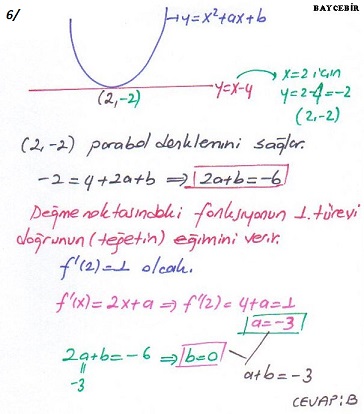 6/ BAYCEBİR
y=x²+ax+b
(2,-2) y=x-4
x=2 için
y=2-4=-2
(2,-2)
(2,-2) parabol denklemini sağlar.
-2=4+2a+b ⇒ 2a+b=-6
Değme noktasındaki fonksiyonun 1. türevi
doğrunun (teğetin) eğimini verir.
f'(2)=1 olcak.
f'(x)=2x+a ⇒ f'(2)=4+a=1
a=-3
2a+b=-6 ⇒ b=0
-3
a+b=-3
CEVAP: B